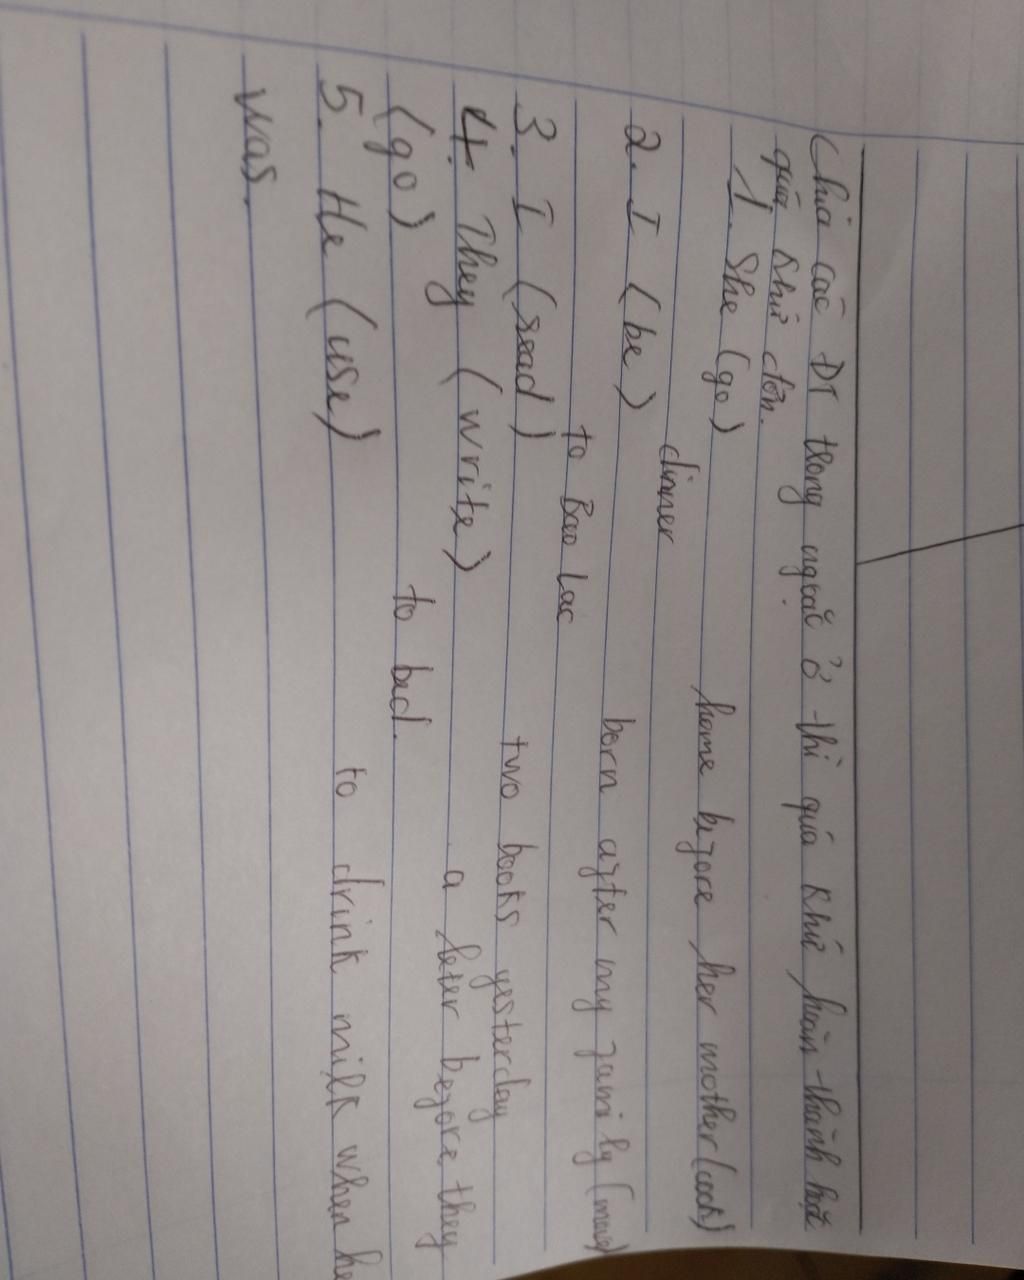 Chia các ĐT trong ngoặc ở thì quá khứ hoàn thành hoặc
quá khứ đơn.
1. She (go) home before her mother (cook)
dinner
2. I (be) born after my family (move)
to Bao Lac
3. I (read) two books yesterday
4. They (write) a leter before they
(go) to bed.
5. He (use) to drink milk when he
was.